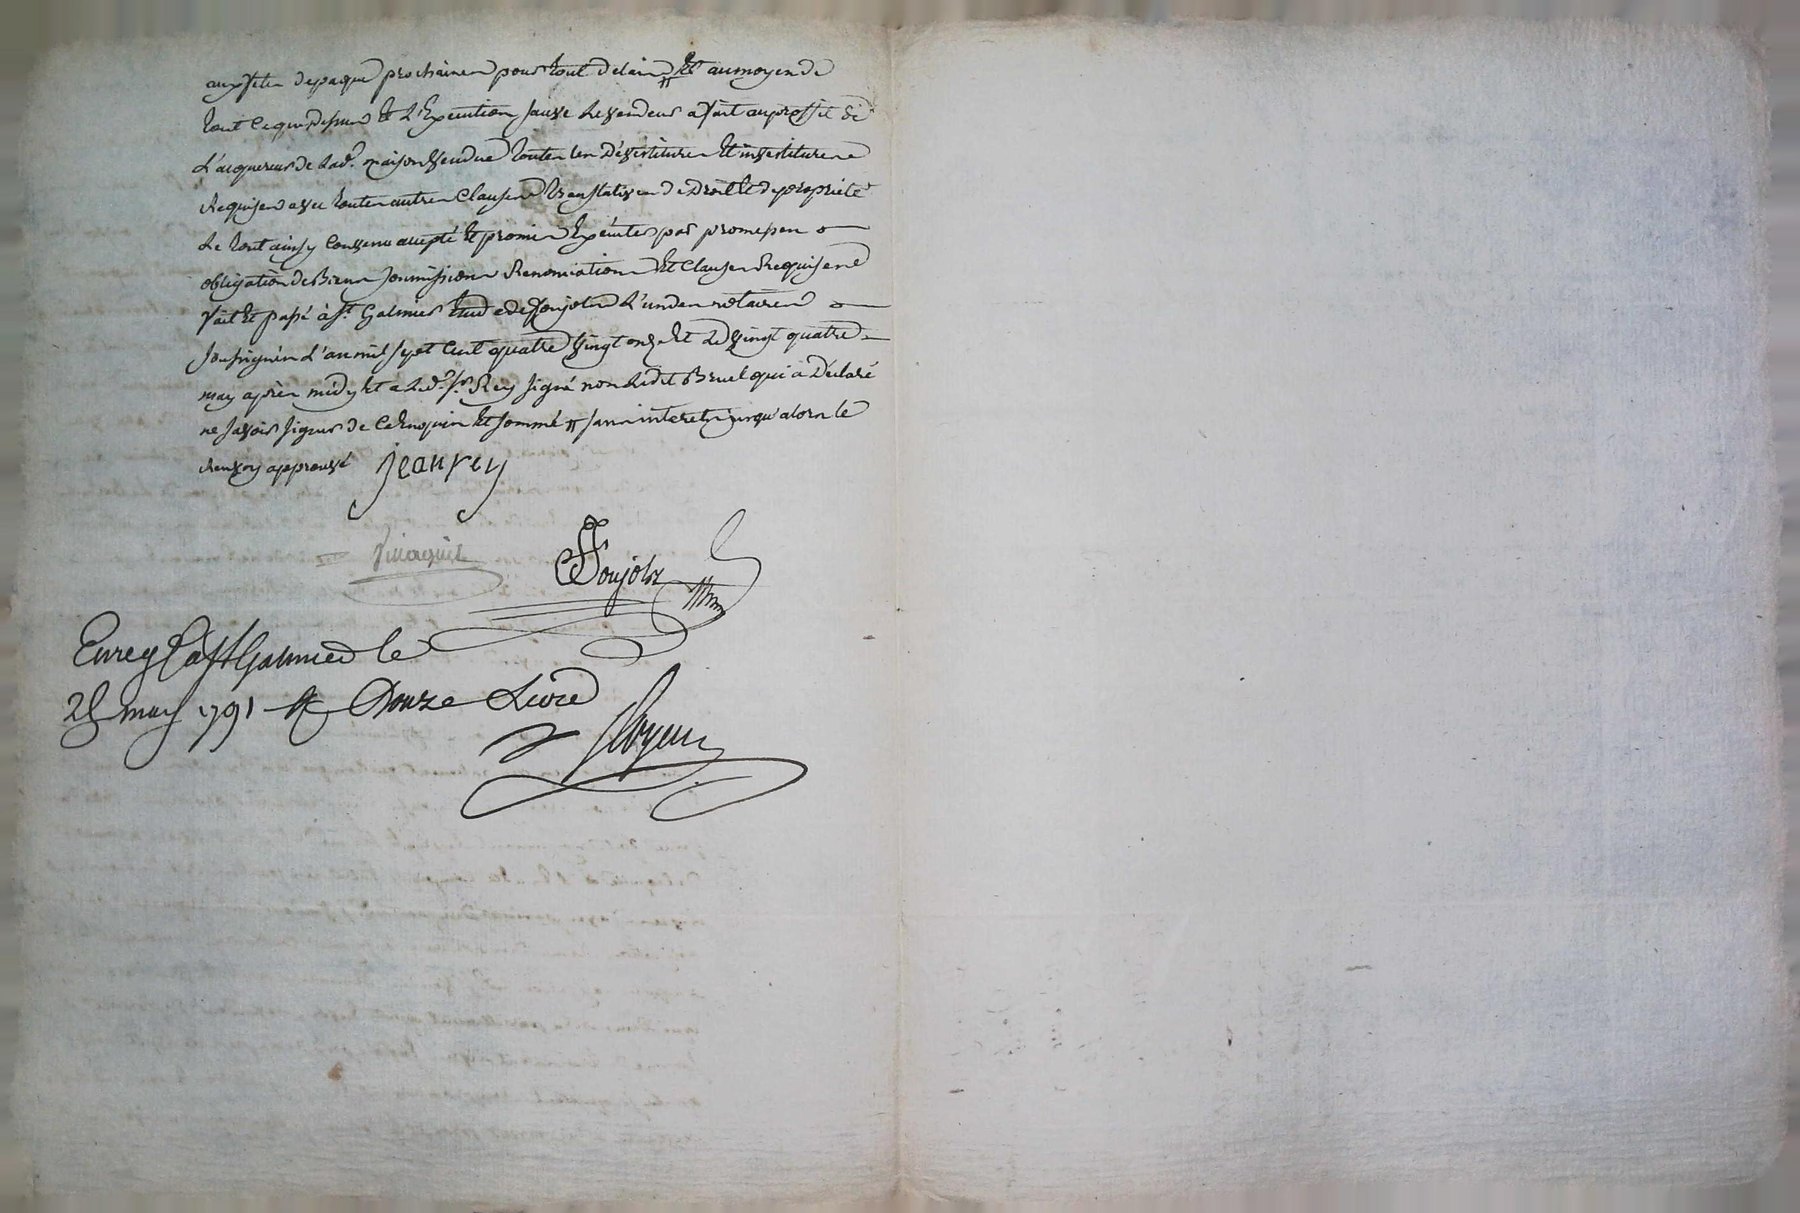 aux fetes de paque prochaines pour tout delais # Et au moyen de
tout ce que dessus Et L'Execution sauve Le vendeur a fait au proffit de
L'acquereur de Lade. maison vendue toutes les Dévestitures Et investitures
Requises avec toutes autres Clauses translatives de Droit Et de propriété
Le tout ainsy Convenu accepté Et promis Exécuter par promesses
obligation de Biens soumissions Renonciations Et Clauses Requises
fait Et passé à St. Galmier Etude de Ponjols L'un des notaires
soussignés L'an mil sept Cent quatre vingt onze Et Le vingt quatre
may après midy Et a Ledt. sr. Rey signé non Ledit Bruel qui a Déclaré
ne savoir signer de Ce Enquis Et sommé # sans interets jusqu'alors le
Renvoy approuvé jean rey
Ponjols
Enregt. à St Galmier le
28 may 1791 R Douze Livre